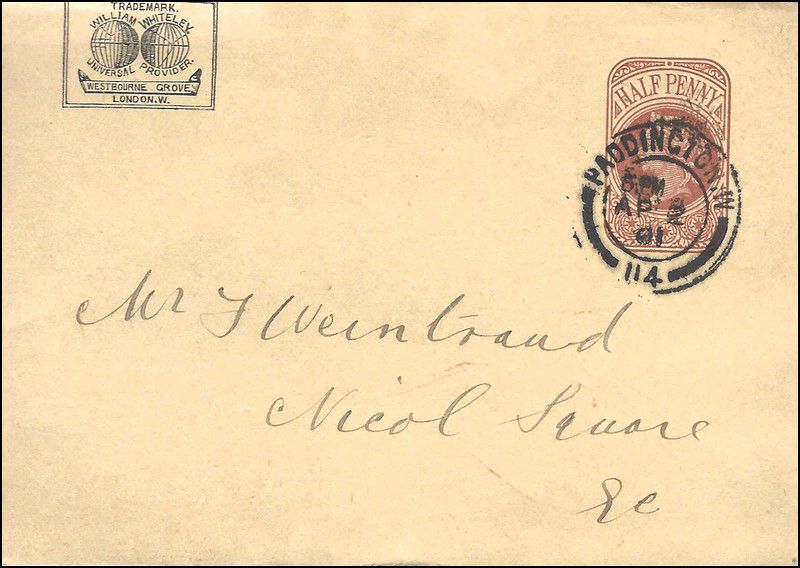 TRADEMARK.
WILLIAM WHITELEY.
UNIVERSAL PROVIDER.
WESTBOURNE GROVE
LONDON.W.
HALF PENNY
PADDINGTON.W
PM
AP 2
01
114
Mr J Weintraud
Nicol Square
Ec